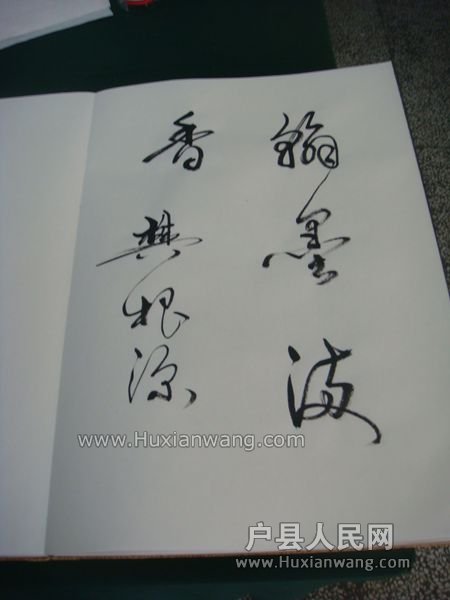 翰墨满
香 樊根源
www.Huxianwang.com
户县人民网
www.Huxianwang.com